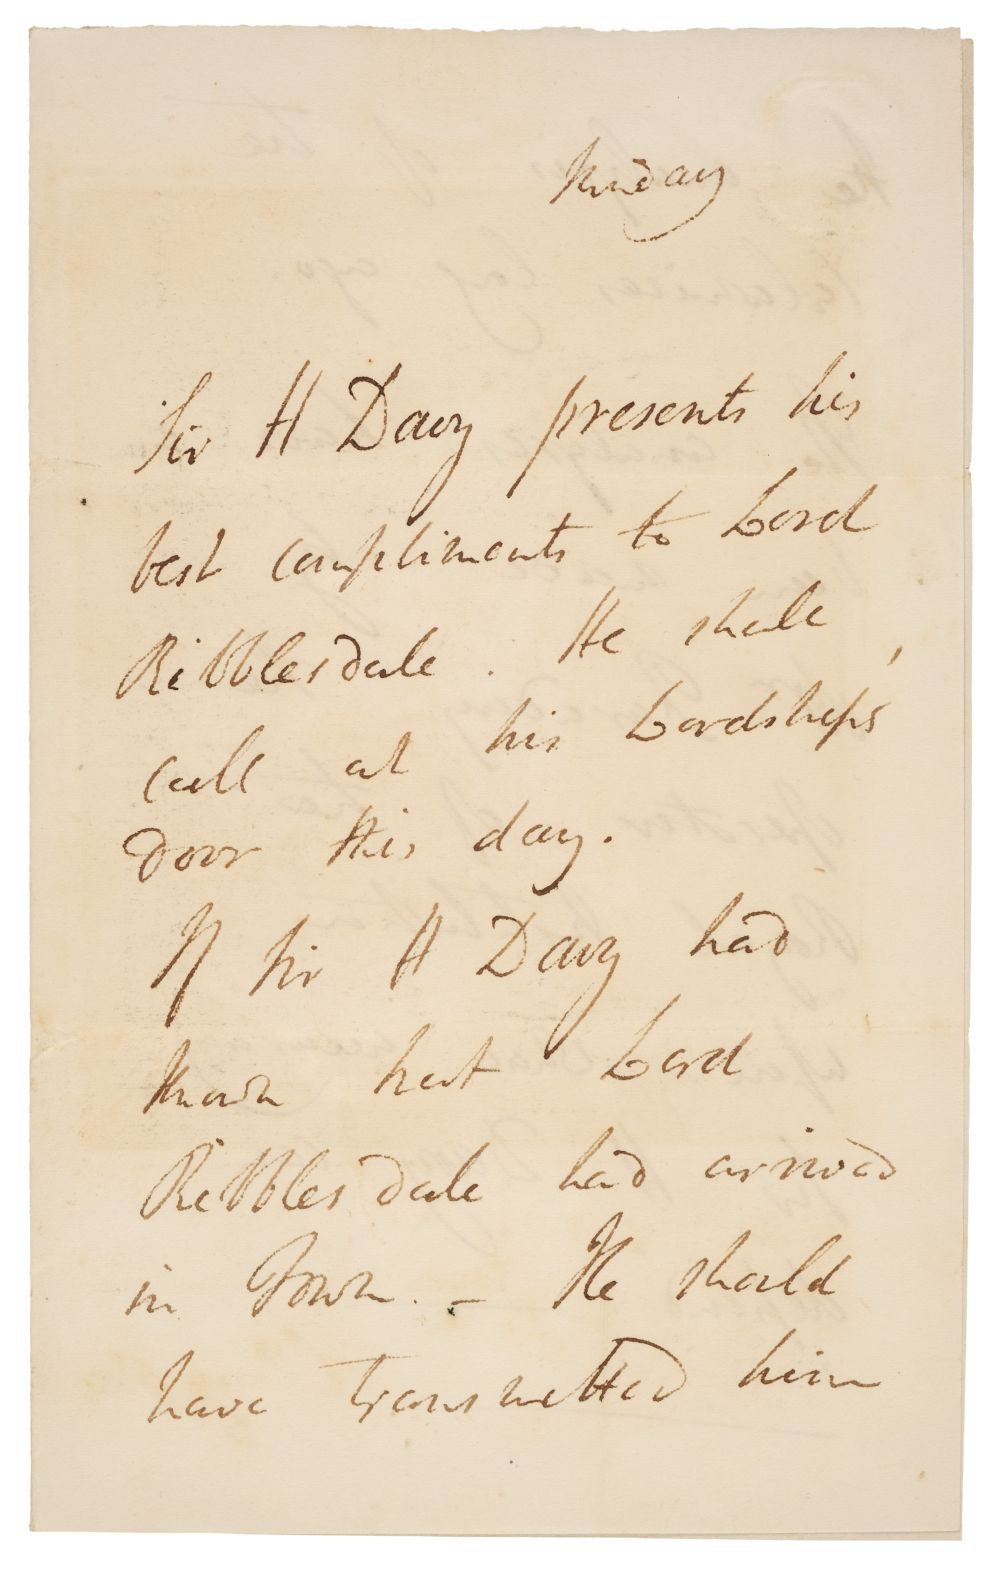 Sir H Davy presents his
best compliments to Lord
Ribblesdale. He shall
call at his Lordships
door this day.
If Sir H Davy had
known that Lord
Ribblesdale had arrived
in Town. – He should
have transmitted him